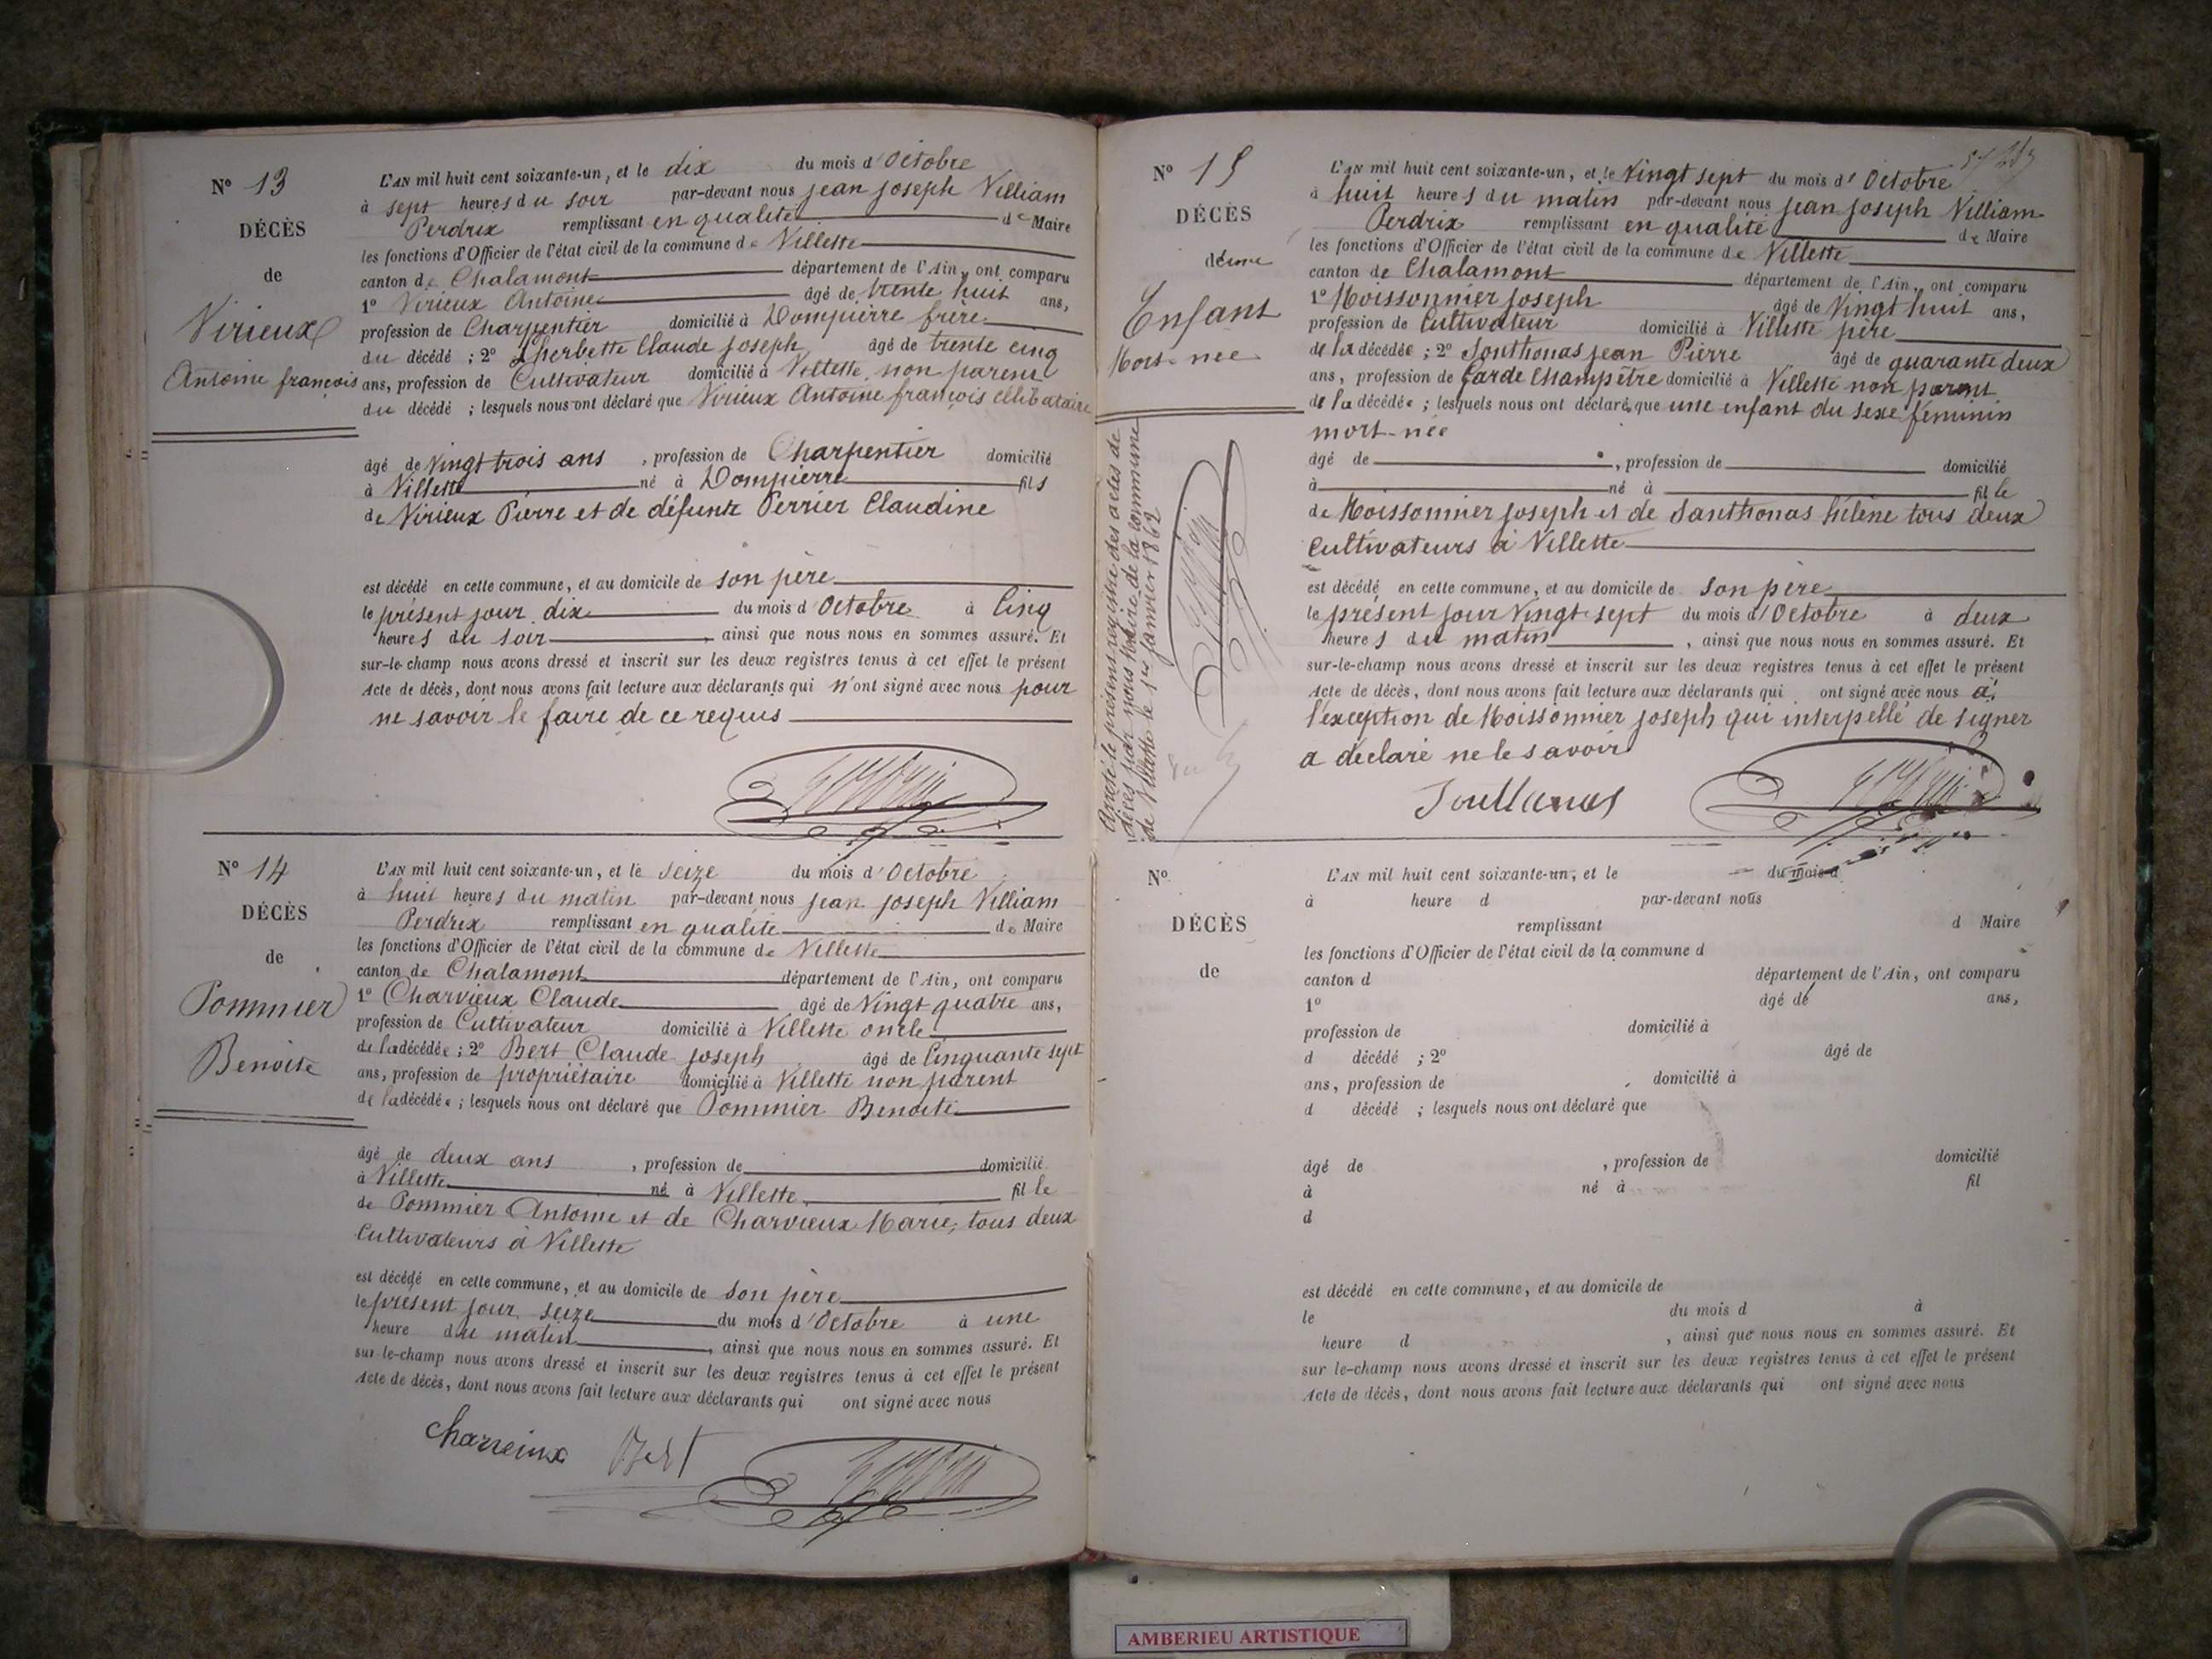 N° 13
DÉCÈS
de
Virieux
Antoine françois
L'AN mil huit cent soixante-un, et le dix du mois d'Octobre
à sept heures du soir par-devant nous jean joseph Villiam
Perdrix remplissant en qualité de Maire
les fonctions d'Officier de l'état civil de la commune de Villette
canton de Chalamont département de l'Ain, ont comparu
1° Virieux Antoine âgé de trente huit ans,
profession de Charpentier domicilié à Dompierre frère
du décédé ; 2° Lherbette Claude joseph âgé de trente cinq
ans, profession de Cultivateur domicilié à Villette non parent
du décédé ; lesquels nous ont déclaré que Virieux Antoine françois célibataire
âgé de Vingt trois ans , profession de Charpentier domicilié
à Villette né à Dompierre fils
de Virieux Pierre et de défunte Perrier Claudine
est décédé en cette commune, et au domicile de son père
le présent jour dix du mois d'Octobre à Cinq
heures du soir , ainsi que nous nous en sommes assuré. Et
sur-le-champ nous avons dressé et inscrit sur les deux registres tenus à cet effet le présent
Acte de décès, dont nous avons fait lecture aux déclarants qui n'ont signé avec nous pour
ne savoir le faire de ce requis
N° 14
DÉCÈS
de
Pommier
Benoite
L'AN mil huit cent soixante-un, et le seize du mois d'Octobre
à huit heures du matin par-devant nous jean joseph Villiam
Perdrix remplissant en qualité de Maire
les fonctions d'Officier de l'état civil de la commune de Villette
canton de Chalamont département de l'Ain, ont comparu
1° Charvieux Claude âgé de Vingt quatre ans,
profession de Cultivateur domicilié à Villette oncle
de la décédée ; 2° Bert Claude joseph âgé de Cinquante sept
ans, profession de propriétaire domicilié à Villette non parent
de la décédée ; lesquels nous ont déclaré que Pommier Benoite
âgé de deux ans , profession de domicilié
à Villette né à Villette fille
de Pommier Antoine et de Charvieux Marie, tous deux
Cultivateurs à Villette
est décédé en cette commune, et au domicile de son père
le présent jour seize du mois d'Octobre à une
heure du matin , ainsi que nous nous en sommes assuré. Et
sur-le-champ nous avons dressé et inscrit sur les deux registres tenus à cet effet le présent
Acte de décès, dont nous avons fait lecture aux déclarants qui ont signé avec nous
Charveiux Bert
N° 15
DÉCÈS
d'une
Enfant
Mort-née
L'AN mil huit cent soixante-un, et le Vingt sept du mois d'Octobre
à huit heures du matin par-devant nous jean joseph Villiam
Perdrix remplissant en qualité de Maire
les fonctions d'Officier de l'état civil de la commune de Villette
canton de Chalamont département de l'Ain, ont comparu
1° Moissonnier joseph âgé de Vingt huit ans,
profession de Cultivateur domicilié à Villette père
de la décédée ; 2° Jonthonas jean Pierre âgé de quarante deux
ans, profession de Garde Champêtre domicilié à Villette non parent
de la décédée ; lesquels nous ont déclaré que une enfant du sexe féminin
mort-née
âgé de , profession de domicilié
à né à fille
de Moissonnier joseph et de Santhonas hélène tous deux
Cultivateurs à Villette
est décédé en cette commune, et au domicile de Son père
le présent jour Vingt sept du mois d'Octobre à deux
heures du matin , ainsi que nous nous en sommes assuré. Et
sur-le-champ nous avons dressé et inscrit sur les deux registres tenus à cet effet le présent
Acte de décès, dont nous avons fait lecture aux déclarants qui ont signé avec nous à
l'exception de Moissonnier joseph qui interpellé de signer
a déclaré ne le savoir
Arrêté le présent registre des actes de
décès par nous Maire de la commune
de Villette le 1er janvier 1862
N°
DÉCÈS
de
L'AN mil huit cent soixante-un, et le du mois d
à heure d par-devant nous
remplissant d Maire
les fonctions d'Officier de l'état civil de la commune d
canton d département de l'Ain, ont comparu
1° âgé de ans,
profession de domicilié à
d décédé ; 2° âgé de
ans, profession de domicilié à
d décédé ; lesquels nous ont déclaré que
âgé de , profession de domicilié
à né à fil
d
est décédé en cette commune, et au domicile de
le du mois d à
heure d , ainsi que nous nous en sommes assuré. Et
sur le-champ nous avons dressé et inscrit sur les deux registres tenus à cet effet le présent
Acte de décès, dont nous avons fait lecture aux déclarants qui ont signé avec nous
AMBERIEU ARTISTIQUE